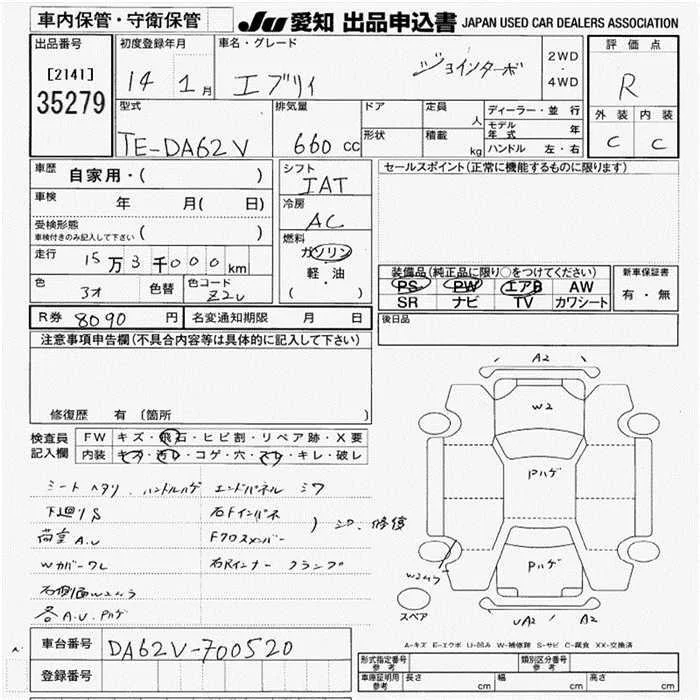 車内保管・守衛保管
JU 愛知 出品申込書 JAPAN USED CAR DEALERS ASSOCIATION
出品番号
[2141]
35279
初度登録年月
14 1月
車名・グレード
エブリイ ジョインターボ
2WD
・
4WD
評価点
R
外装 内装
C C
型式
TE-DA62V
排気量
660 cc
ドア
形状
定員
人
積載
kg
ディーラー・並行
モデル年式 年
ハンドル 左・右
車歴 自家用・( )
車検 年 月( 日)
受検形態
車検付きのみ記入して下さい ( )
走行 15万3千000km
色 シオ 色替 色コード Z2U
シフト
IAT
冷房
AC
燃料
ガソリン
軽・油
( )
セールスポイント(正常に機能するものに限ります)
装備品(純正品に限り○をつけてください)
PS PW エアB AW
SR ナビ TV カワシート
新車保証書
有・無
R券 8090 円 名変通知期限 月 日
後日品
注意事項申告欄(不具合内容等は具体的に記入して下さい)
修復歴 有 (箇所 )
検査員
記入欄
FW キズ・飛石・ヒビ割・リペア跡・X要
内装 キズ・汚レ・コゲ・穴・スレ・キレ・破レ
シートヘタリ ハンドルハゲ エンドパネル シワ
下廻りS 右Fインパネ
荷室A.U Fクロスメンバー ) シワ、修復
Wカバーワレ 右Rインナー クランプ
右側面Wムラ
各A.U.Pハゲ
A2
W2
Pハゲ
Pハゲ
Wムラ
スペア
UA2 A2
A-キズ E-エクボ U-凹み W-補修跡 S-サビ C-腐食 XX-交換済
車台番号 DA62V-700520
登録番号
形式指定番号
参考
類別区分番号
参考
車庫証明用
参考
長さ cm 幅 cm 高さ cm